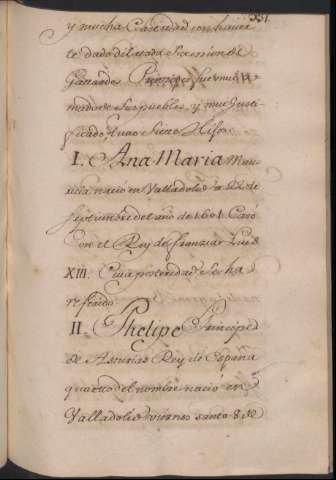 331
y mucha Caridad con haver
te dado dilatada
Principe fue muy a
mado de Sus pueblos, y muy Justi
ficado, tuvo Siete Hijos
I. Ana Maria Mau
ricia nacio en Valladolid a 22 de
Septiembre del año de 1601 Casò
Con el Rey de Francia Luis
XIII. Cuia posteridad Se ha
referido.
II. Phelipe Principe
de Asturias Rey de España
quarto del nombre naciò en
Valladolid viernes santo 8 de